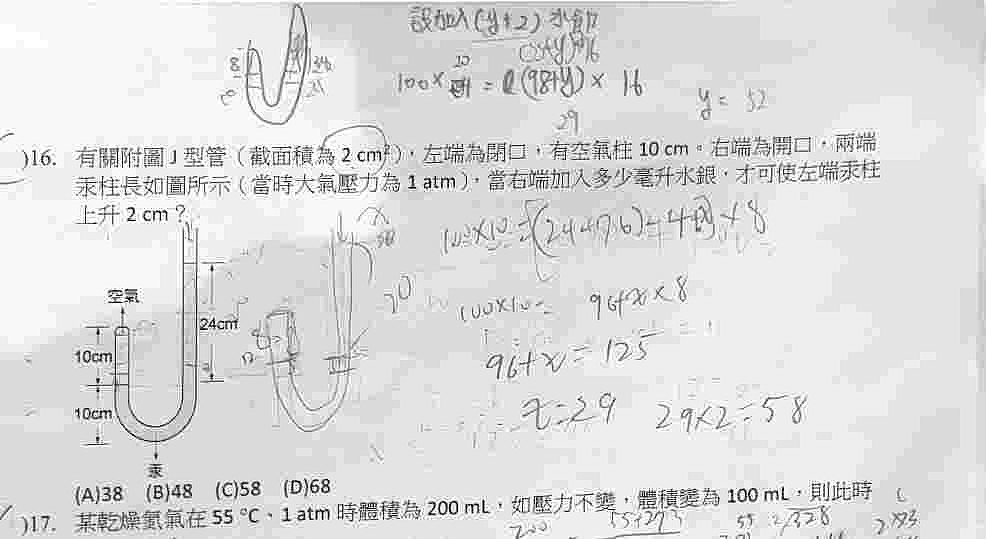 設加入(y+2)水銀
8
(98+y)×16
100×20 = (98+y)×16
29
y = 52
)16. 有關附圖 J 型管(截面積為 2 cm²),左端為閉口,有空氣柱 10 cm。右端為開口,兩端
汞柱長如圖所示(當時大氣壓力為 1 atm),當右端加入多少毫升水銀,才可使左端汞柱
上升 2 cm?
空氣
24cm
10cm
10cm
汞
100×10=96+x×8
96+x=125
x=29
29×2=58
(A)38 (B)48 (C)58 (D)68
)17. 某乾燥氦氣在 55 °C、1 atm 時體積為 200 mL,如壓力不變,體積變為 100 mL,則此時
200
55+273
55
328